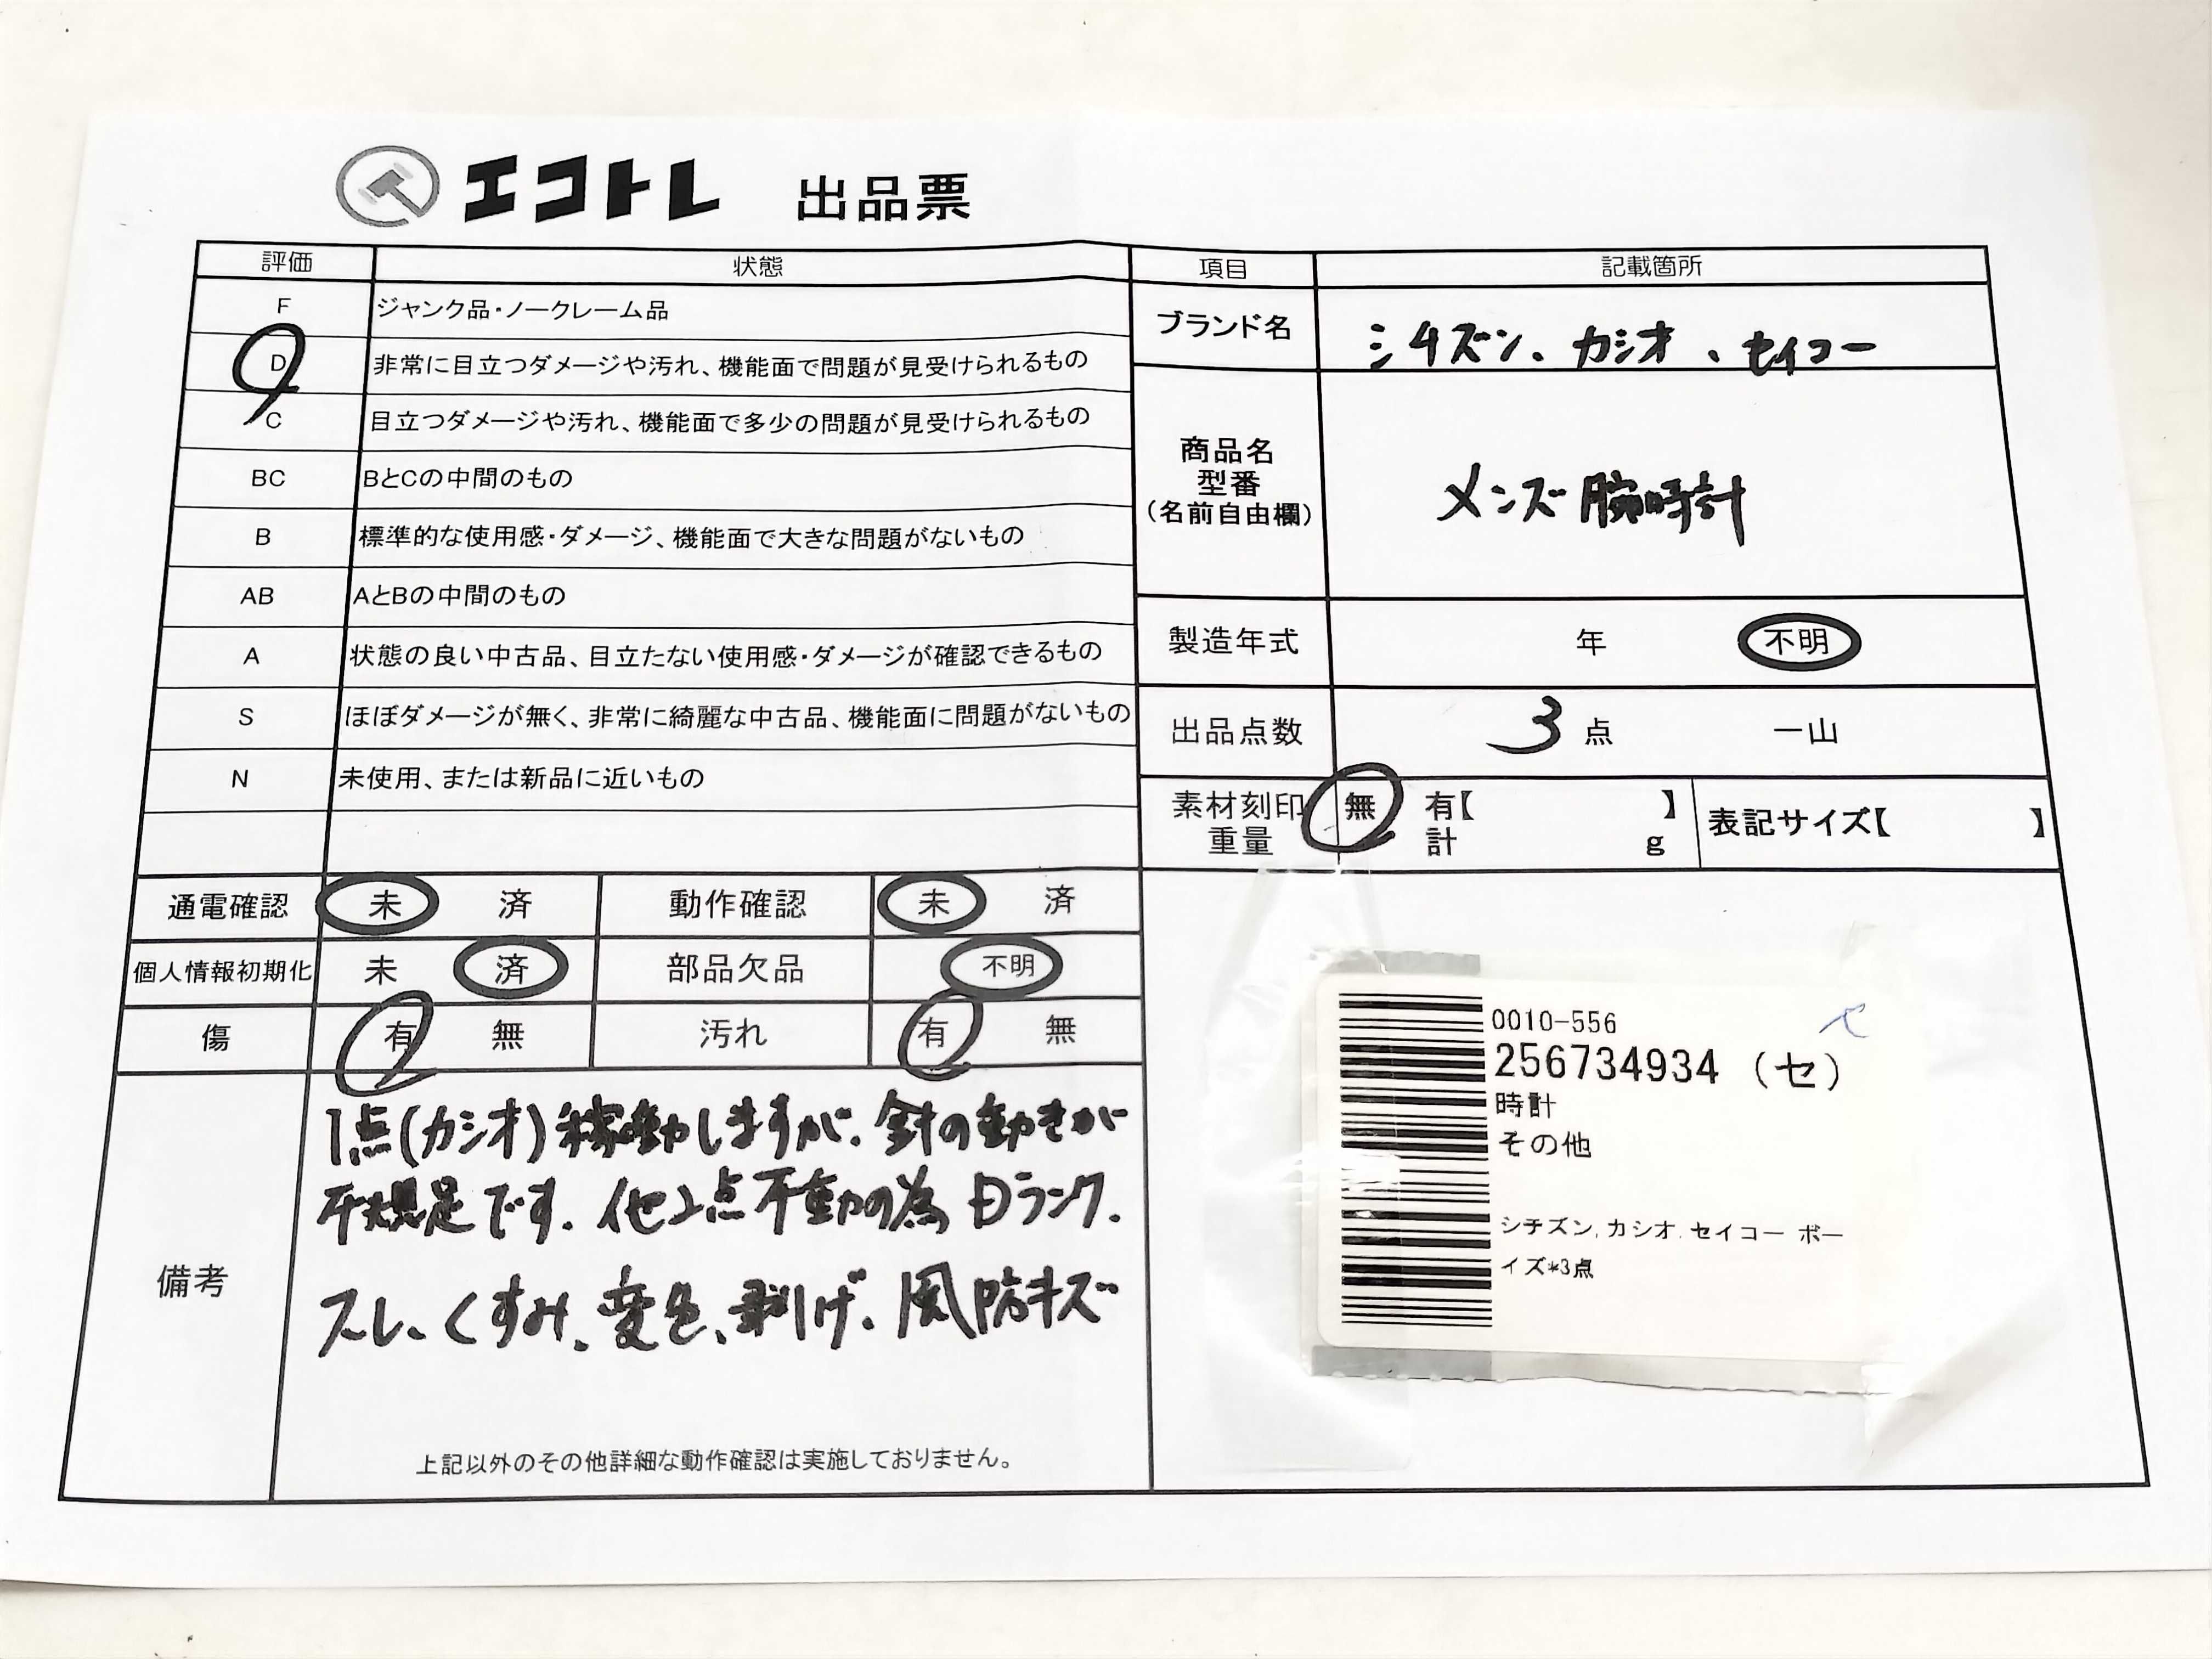 エコトレ 出品票
評価 状態
F ジャンク品・ノークレーム品
D 非常に目立つダメージや汚れ、機能面で問題が見受けられるもの
C 目立つダメージや汚れ、機能面で多少の問題が見受けられるもの
BC BとCの中間のもの
B 標準的な使用感・ダメージ、機能面で大きな問題がないもの
AB AとBの中間のもの
A 状態の良い中古品、目立たない使用感・ダメージが確認できるもの
S ほぼダメージが無く、非常に綺麗な中古品、機能面に問題がないもの
N 未使用、または新品に近いもの
項目 記載箇所
ブランド名 シチズン、カシオ、セイコー
商品名
型番
(名前自由欄)
メンズ腕時計
製造年式 年 不明
出品点数 3 点 一山
素材刻印 無 有【 】
重量 計 g
表記サイズ【 】
通電確認 未 済 動作確認 未 済
個人情報初期化 未 済 部品欠品 不明
傷 有 無 汚れ 有 無
備考
1点(カシオ)稼動しますが、針の動きが
不規足です。他2点不動の為Dランク.
スレ、くすみ、変色、剥げ、風防キズ
上記以外のその他詳細な動作確認は実施しておりません。
0010-556
256734934 (セ)
時計
その他
シチズン,カシオ,セイコー ボー
イズ*3点